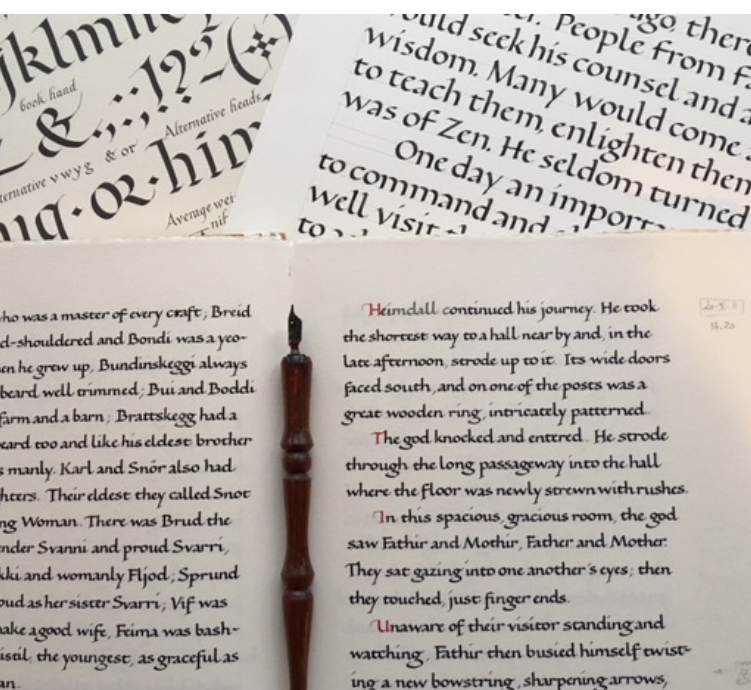 jklmn
book hand
&.,:;!?
Alternative heads
ternative v w y g & or
ug·or·him
Average
Tnif
ould seek his counsel and a
r. People from fa
ago, there
wisdom. Many would come
to teach them, enlighten them
was of Zen. He seldom turned
One day an import
to command and
well visit
to
who was a master of every craft; Breid
d-shouldered and Bondi was a yeo-
en he grew up, Bundinskeggi always
beard well trimmed; Bui and Boddi
farm and a barn; Brattskegg had a
eard too and like his eldest brother
s manly. Karl and Snör also had
hters. Their eldest they called Snot
ng Woman. There was Brud the
nder Svanni and proud Svarri,
kki and womanly Fljod; Sprund
oud as her sister Svarri; Vif was
ake a good wife, Feima was bash-
istil, the youngest, as graceful as
an.
Heimdall continued his journey. He took
the shortest way to a hall near by and, in the
late afternoon, strode up to it. Its wide doors
faced south, and on one of the posts was a
great wooden ring, intricately patterned.
The god knocked and entered. He strode
through the long passageway into the hall
where the floor was newly strewn with rushes.
In this spacious, gracious room, the god
saw Fathir and Mothir, Father and Mother.
They sat gazing into one another's eyes; then
they touched, just finger ends.
Unaware of their visitor standing and
watching, Fathir then busied himself twist-
ing a new bowstring, sharpening arrows,